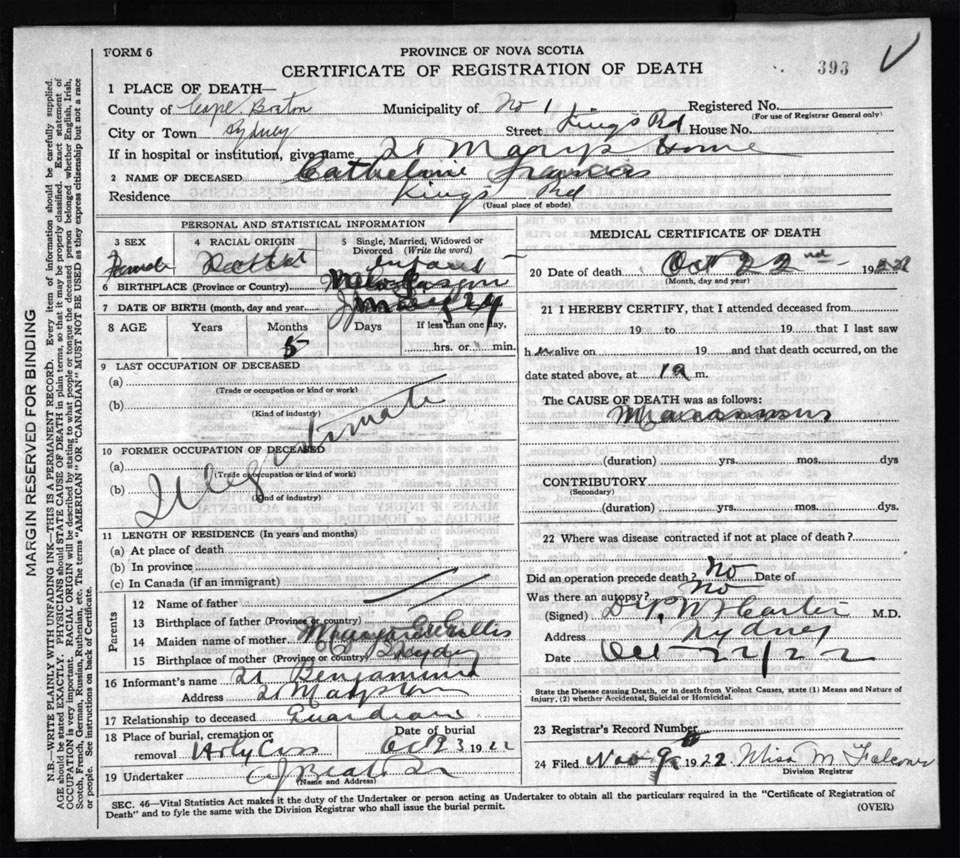 FORM 6
PROVINCE OF NOVA SCOTIA
CERTIFICATE OF REGISTRATION OF DEATH
393
1 PLACE OF DEATH—
County of Cape Breton Municipality of No 1 Registered No.
(For use of Registrar General only)
City or Town Sydney Street Kings Rd House No.
If in hospital or institution, give name St Marys Home
2 NAME OF DECEASED Catherine Francis
Residence Kings Rd
(Usual place of abode)
PERSONAL AND STATISTICAL INFORMATION
3 SEX Female
4 RACIAL ORIGIN
5 Single, Married, Widowed or Divorced (Write the word) Infant
6 BIRTHPLACE (Province or Country)
7 DATE OF BIRTH (month, day and year)
8 AGE Years Months Days If less than one day,
5 hrs. or min.
9 LAST OCCUPATION OF DECEASED
(a)
(Trade or occupation or kind or work)
(b)
(Kind of industry)
Illegitimate
10 FORMER OCCUPATION OF DECEASED
(a)
(Trade occupation or kind of work)
(b)
(Kind of industry)
11 LENGTH OF RESIDENCE (In years and months)
(a) At place of death
(b) In province
(c) In Canada (if an immigrant)
Parents
12 Name of father
13 Birthplace of father (Province or country)
14 Maiden name of mother Gillis
15 Birthplace of mother (Province or country) Sydney
16 Informant's name Benjamin
Address St Marys Home
17 Relationship to deceased Guardian
18 Place of burial, cremation or removal Holy Cross
Date of burial Oct 23 1922
19 Undertaker
(Name and Address)
MEDICAL CERTIFICATE OF DEATH
20 Date of death Oct 22nd 1922
(Month, day and year)
21 I HEREBY CERTIFY, that I attended deceased from
19 to 19 that I last saw
h alive on 19 and that death occurred, on the
date stated above, at m.
The CAUSE OF DEATH was as follows:
Marasmus
(duration) yrs. mos. dys
CONTRIBUTORY
(Secondary)
(duration) yrs. mos. dys.
22 Where was disease contracted if not at place of death?
Did an operation precede death? No Date of
Was there an autopsy? No
(Signed) M.D.
Address Sydney
Date Oct 22/22
State the Disease causing Death, or in death from Violent Causes, state (1) Means and Nature of
Injury, (2) whether Accidental, Suicidal or Homicidal.
23 Registrar's Record Number
24 Filed Nov 9 1922 Miss M Falconer
Division Registrar
SEC. 46—Vital Statistics Act makes it the duty of the Undertaker or person acting as Undertaker to obtain all the particulars required in the "Certificate of Registration of
Death" and to fyle the same with the Division Registrar who shall issue the burial permit.
(OVER)
MARGIN RESERVED FOR BINDING
N.B.—WRITE PLAINLY WITH UNFADING INK—THIS IS A PERMANENT RECORD. Every item of information should be carefully supplied.
AGE should be stated EXACTLY. PHYSICIANS should STATE CAUSE OF DEATH in plain terms, so that it may be properly classified. Exact statement of
OCCUPATION is very important. RACIAL ORIGIN will be described by stating to what people or tongue the deceased person belonged whether English, Irish,
Scotch, French, German, Russian, Ruthenian, etc. The terms "AMERICAN" OR "CANADIAN" MUST NOT BE USED as they express citizenship but not a race
or people. See instructions on back of Certificate.